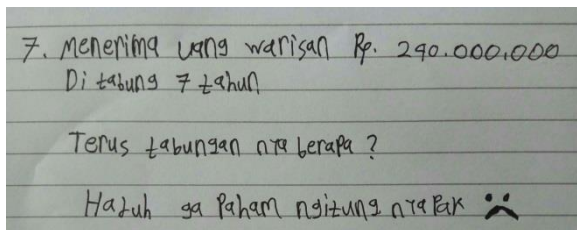 7. Menerima uang warisan Rp. 290.000.000
Di tabung 7 tahun
Terus tabungan nya berapa ?
Haduh ga Paham ngitung nya Pak